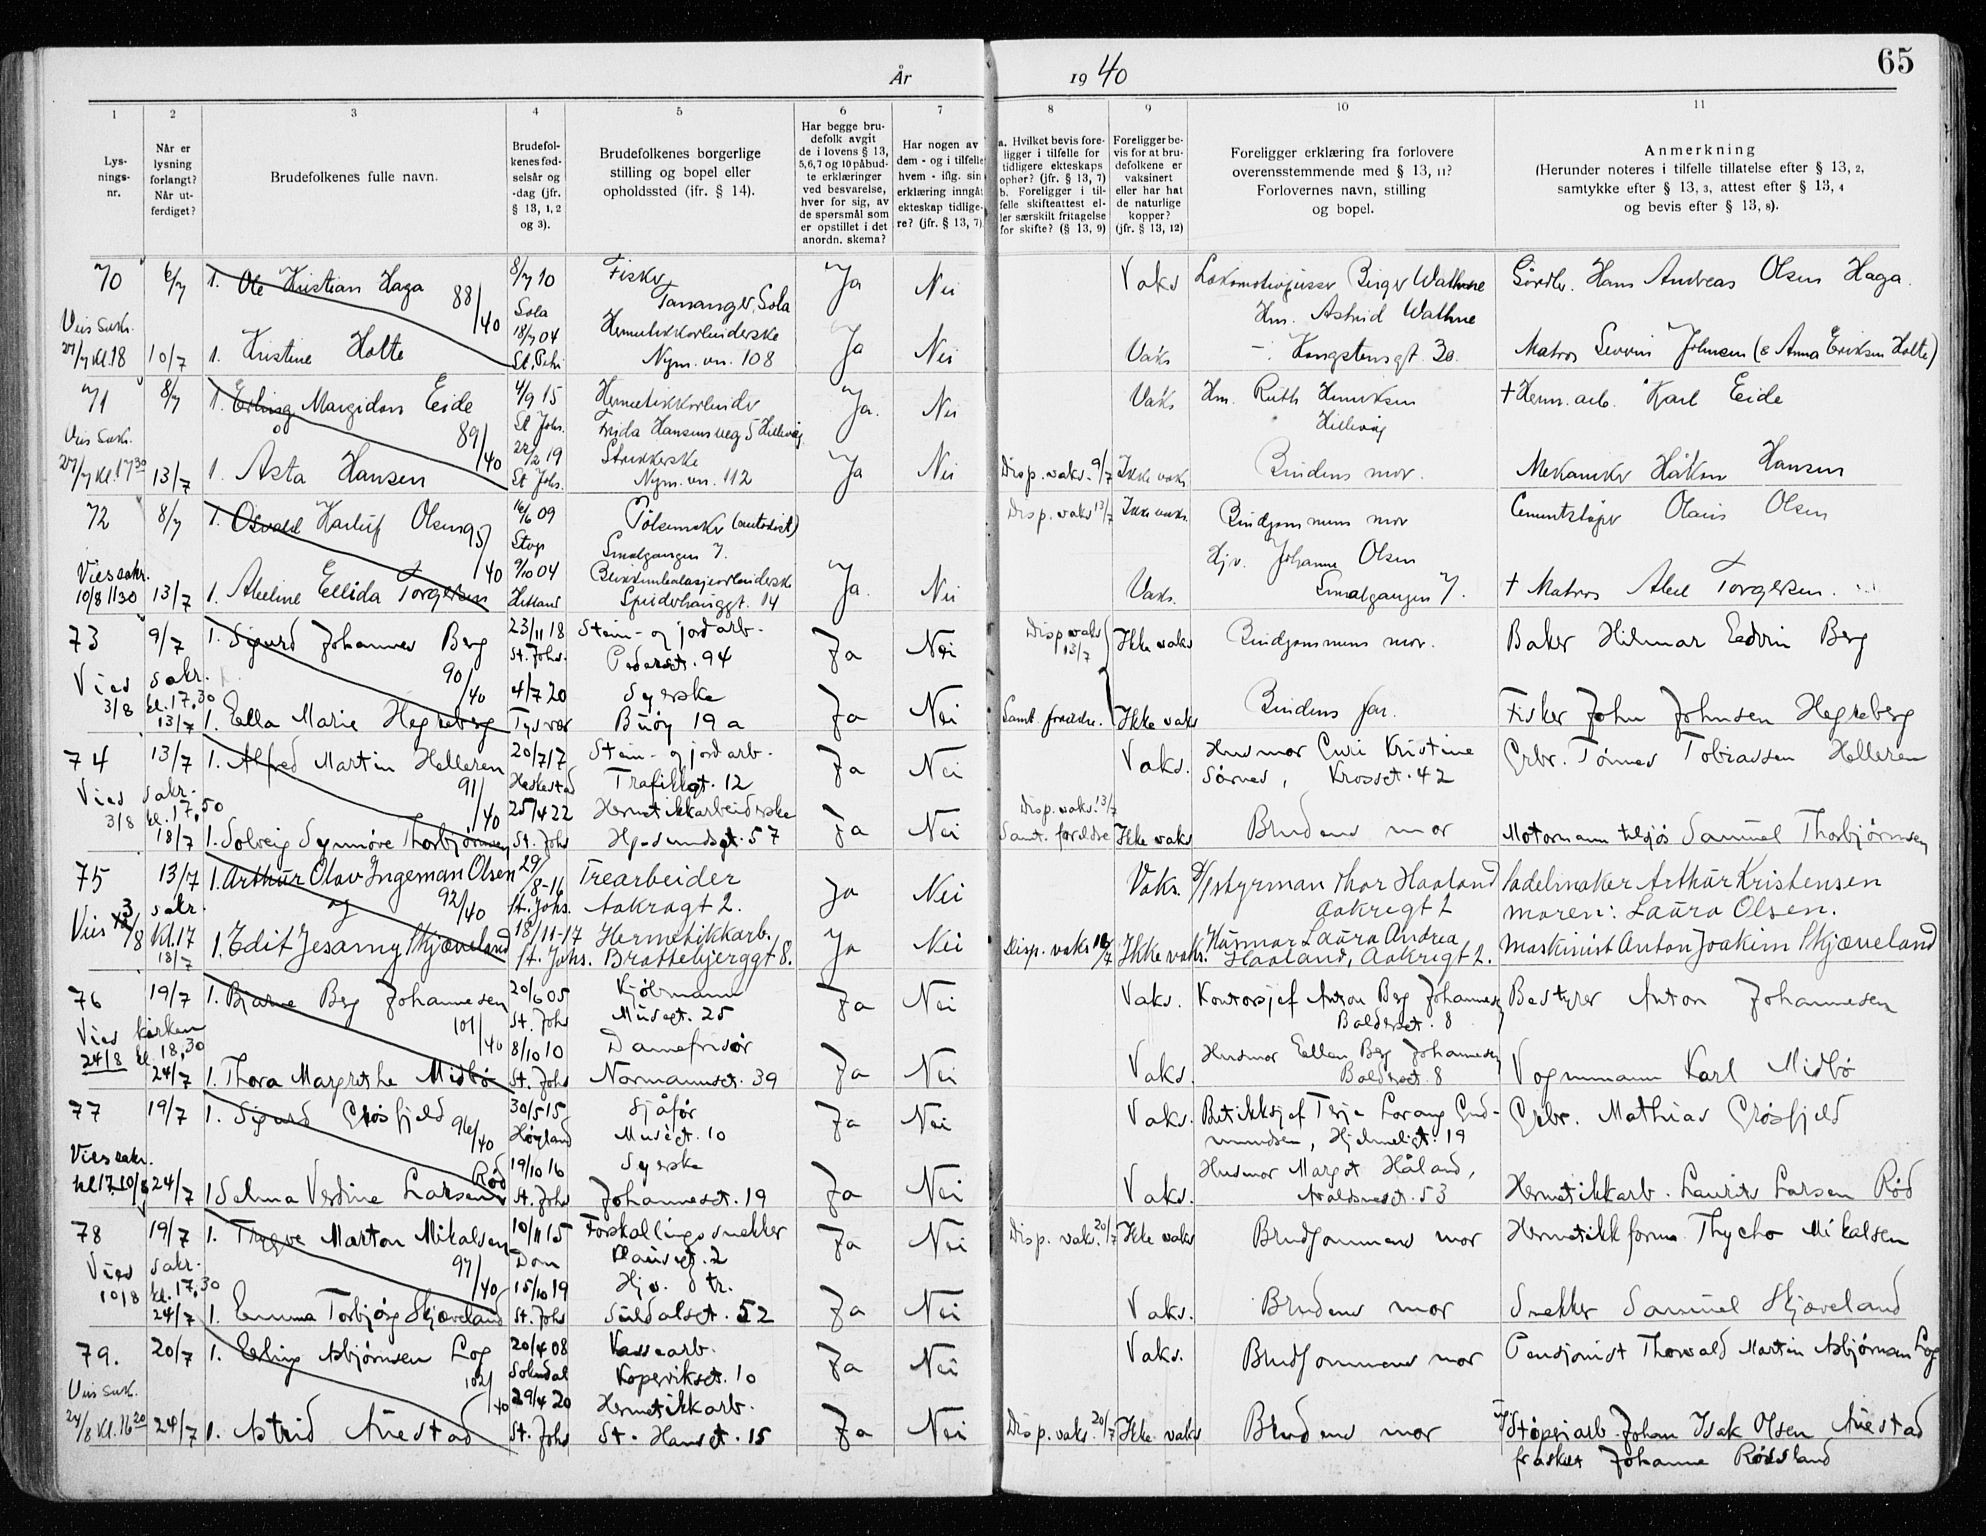 År 1940
65
1
2
3
4
5
6
7
8
9
10
11
Lysningsnr.
Når er lysning forlangt? Når utferdiget?
Brudefolkenes fulle navn.
Brudefolkenes fødselsår og -dag (jfr. § 13, 1, 2 og 3).
Brudefolkenes borgerlige stilling og bopel eller opholdssted (jfr. § 14).
Har begge brudefolk avgit de i lovens § 13, 5,6,7 og 10 påbudte erklæringer ved besvarelse, hver for sig, av de spørsmål som er opstillet i det anordn. skema?
Har nogen av dem - og i tilfelle hvem - iflg. sin erklæring inngåt ekteskap tidligere? (jfr. § 13, 7)
a. Hvilket bevis foreligger i tilfelle for tidligere ekteskaps ophør? (jfr. § 13, 7)
b. Foreligger i tilfelle skifteattest eller særskilt fritagelse for skifte? (§ 13, 9)
Foreligger bevis for at brudefolkene er vaksinert eller har hat de naturlige kopper? (jfr. § 13, 12)
Foreligger erklæring fra forlovere overensstemmende med § 13, 11? Forlovernes navn, stilling og bopel.
Anmerkning
(Herunder noteres i tilfelle tillatelse efter § 13, 2, samtykke efter § 13, 3, attest efter § 13, 4 og bevis efter § 13, 8).
70 6/7 1. Ole Kristian Haga 8/7 10 Fisker Ja Nei Vaks Birger Wathne Hans Andreas Olsen Haga.
88/40 Sola Tananger, Sola Hm. Astrid Wathne
Vies sakr. 18/7 04
27/7 Kl. 18 10/7 1. Kristine Holte St. Petri Nym.vn. 108 Ja Nei Vaks Kongstensgt. 30. Matros Severin Johnsen (& Anna Eriksen Holte)
71 8/7 1. Erling Margidon Eide 4/9 15 Ja. Nei Vaks Hm. Ruth Henriksen † Herm.arb. Karl Eide
89/40 St Johs. Frida Hansensveg 5 Hillevåg Hillevåg
Vies sakr. 22/2 19 Strikkerske
27/7 Kl. 17 30 13/7 1. Asta Hansen St Johs. Nym.vn. 112 Ja Nei Disp. vaks. 9/7 Ikke vaks Brudens mor. Mekaniker Håkon Hansen
72 8/7 1. Osvald Karluf Olsen 16/6 09 Pølsemaker (autodist) Disp. vaks 13/7 Ikke vaks. Brudgommens mor Olaus Olsen
95/40 Stvgr Smalgangen 7. Hjv. Johanne Olsen
Vies sakr. 9/10 04
10/8 1130 13/7 1. Abeline Ellida Torgersen Hetland Spinderhauggt. 14 Ja. Nei Vaks. Smalgangen 7. † Matros Abel Torgersen.
73 9/7 1. Sigurd Johannes Berg 23/11 18 Stein- og jordarb. Ja Nei Disp vaks 13/7 Ikke vaks Brudgommens mor. Baker Hilmar Edvin Berg
Vies sakr. 90/40 St. Johs. Pedersgt. 94
3/8 kl. 17,30 4/7 20 Syerske
13/7 1. Ella Marie Hegreberg Tysvær Buøy 19 a Ja Nei Samt. foreldre. Ikke vaks Brudens far. Fisker John Johnsen Hegreberg
74 13/7 1. Alfred Martin Helleren 20/7 17 Stein- og jordarb. Ja Nei Vaks. Husmor Guri Kristine Grbr. Tønnes Tobiassen Helleren
91/40 Heskestad Trafikkgt. 12 Sørnes, Krossgt. 42
Vies sakr. 25/4 22 Hermetikkarbeiderske Disp. vaks. 13/7
3/8 kl. 17,50
18/7 1. Solveig Synnøve Thorbjørnsen St. Johs Hjelmelandsgt. 57 Ja Nei Samt. foreldre Ikke vaks Brudens mor Motormann tilsjøs Samuel Thorbjørnsen
75 13/7 1. Arthur Olav Ingeman Olsen 29/8-16 Trearbeider Ja Nei Vaks. styrman Thor Haaland Sadelmaker Arthur Kristensen
sakr. og 92/40 St. Johs. Aakragt 2. Aakregt 2 moren: Laura Olsen.
Vies 3/8 Kl. 17 18/11-17 Hermetikkarb. Husmor Laura Andrea
18/7 1. Edit Jesamy Skjæveland St. Johs. Brattebjerggt 8. Ja Nei Disp. vaks 18/7 Ikke vaks. Haaland, Aakregt 2. Maskinist Anton Joakim Skjæveland
76 19/7 1. Bjarne Berg Johannesen 20/6 05 Kjøbmann Ja Nei Vaks. Kontorsjef Anton Berg Johannesen Bestyrer Anton Johannesen
101/40 St. Johs Muségt. 25 Baldersgt. 8
Vies kirken 8/10 10 Damefrisør Husmor Ellen Berg Johannesen
24/8 kl. 18,30
24/7 1. Thora Margrethe Midbø St. Johs Normannsgt. 39 Ja Nei Vaks. Baldersgt. 8 Vognmann Karl Midbø
77 19/7 1. Sigurd Grøsfjeld 30/5 15 Sjåfør Ja Nei Vaks. Butikksjef Terje Lorang Gud- Grbr. Mathias Grøsfjeld
96/40 Høyland Muségt. 10 mundsen, Hjelmelgt. 19
Vies sakr. 19/10 16 Syerske Husmor Margot Håland,
kl 17 10/8 24/7 1 Selma Verdine Larsen Rød St. Johs Johannesgt. 19 Ja Nei Vaks. Avaldsnesgt. 53 Hermetikkarb. Laurits Larsen Rød
78 19/7 1. Trygve Marton Mikalsen 10/11 15 Forskallingssnekker Ja Nei Disp. vaks. 20/7 Ikke vaks Brudgommens mor Hermetikkform. Thycho Mikalsen
Vies sakr. 97/40 Dom
10/8 kl. 17,30 15/10 19 Hjv. dtr.
24/7 1. Emma Torbjørg Skjæveland St. Johs Suldalsgt. 52 Ja Nei Vaks. Brudens mor Snekker Samuel Skjæveland
79. 20/7 1. Erling Asbjørnsen Log 20/4 08 Kassearb. Ja Nei Vaks. Brudgommens mor Pensjonist Thorvald Martin Asbjørnsen Log
102/40 Sokndal Kopervikgt. 10
Vies sakr. 29/4 20 Hermetikkarb.
24/8 Kl. 16 20 24/7 1. Astrid Auestad St. Johs St. Hansgt. 15 Ja Nei Disp. vaks. 20/7 Ikke vaks Brudens mor Støperiarb. Johan Isak Olsen Auestad
fraskilt Johanne Rødsland